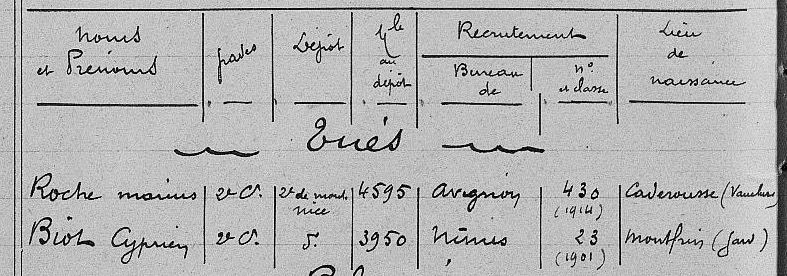 Noms et Prénoms | grades | Dépôt | Mle au dépôt | Recrutement | Lieu de naissance
Bureau de | n° et classe
Tués
Roche Marius | 2e Cr. | 2e de mont. Nice | 4595 | Avignon | 430 (1914) | Caderousse (Vaucluse)
Biot Cyprien | 2e Cr. | 3950 | Nîmes | 23 (1901) | Montfrin (Gard)